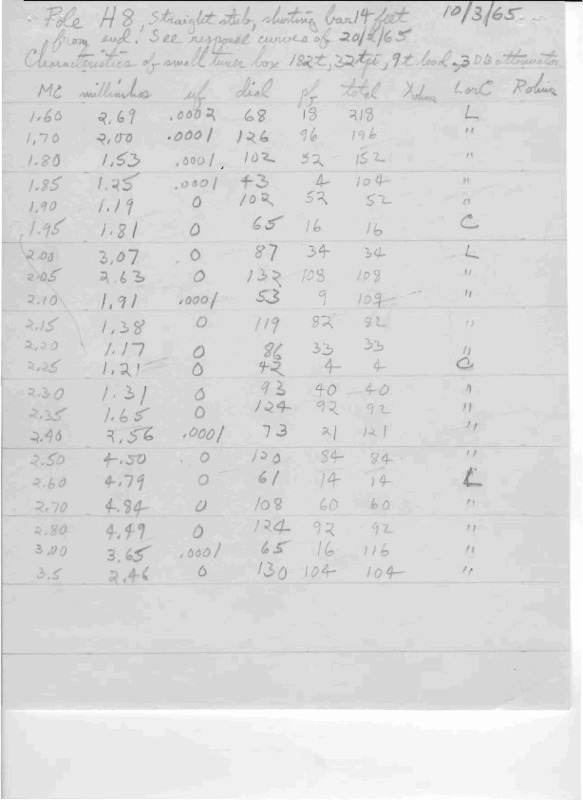 Pole H8, Straight stub, shorting bar 14 feet 10/3/65
from end. See response curves of 20/2/65
Characteristics of small tuner box 182t, 32tpi, 9t load, 3DB attenuator
MC millimhos uf dial pf total X LorC Rohms
1.60 2.69 .0002 68 18 218 L
1.70 2.00 .0001 126 96 196 "
1.80 1.53 .0001 102 52 152 "
1.85 1.25 .0001 43 4 104 "
1.90 1.19 0 102 52 52 "
1.95 1.81 0 65 16 16 C
2.00 3.07 0 87 34 34 L
2.05 2.63 0 132 108 108 "
2.10 1.91 .0001 53 9 109 "
2.15 1.38 0 119 82 82 "
2.20 1.17 0 86 33 33 "
2.25 1.21 0 42 4 4 C
2.30 1.31 0 93 40 40 "
2.35 1.65 0 124 92 92 "
2.40 2.56 .0001 73 21 121 "
2.50 4.50 0 120 84 84 "
2.60 4.79 0 61 14 14 L
2.70 4.84 0 108 60 60 "
2.80 4.49 0 124 92 92 "
3.00 3.65 .0001 65 16 116 "
3.5 2.46 0 130 104 104 "